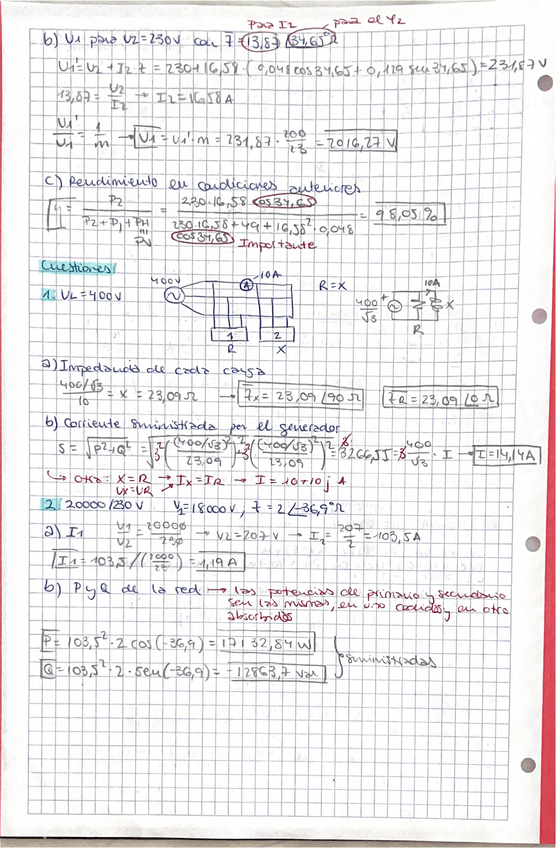 para I2 para el φ2
b) U1 para U2=230V con Z=13,87 34,65°Ω
U1'=U2+I2 Z = 230+16,58·(0,048cos34,65+0,129sen34,65)=231,87V
13,87 = U2/I2 → I2=16,58A
U1'/U1 = 1/m → U1 = U1'·m = 231,87 · 200/23 = 2016,27 V
c) Rendimiento en condiciones anteriores
η = P2/(P2+P1+PH = PV) = 230·16,58 cos34,65/(230·16,58+49+16,58²·0,048) = 98,05%
cos34,65 Importante
Cuestiones
400V A 10A R=X 10A
1. UL=400V 400/√3 + X
1 2 R
R X
a) Impedancia de cada carga
400/√3/10 = X = 23,09Ω → Zx = 23,09 /90 Ω ZR = 23,09 /0 Ω
b) Corriente suministrada por el generador
S = √P²+Q² = √(3(400/√3)²/23,09)²+(3(400/√3)²/23,09)² = 3·3266,55=3·400/√3 · I → I=14,14A
↳ Otra: X=R → Ix=IR → I = 10+10j A
Ux=UR
2. 20000/230V V1=18000V, Z=2∠-36,9°Ω
a) I1 U1/U2 = 20000/230 → U2=207V → I2=207/2=103,5A
I1=103,5/(2000/23)=1,19A
b) P y Q de la red → las potencias de primario y secundario
son las mismas, en uno cedidas y en otro
absorbidas
P=103,5²·2 cos(-36,9)=17132,84W
suministradas
Q=103,5²·2·sen(-36,9)=-12863,7 Var